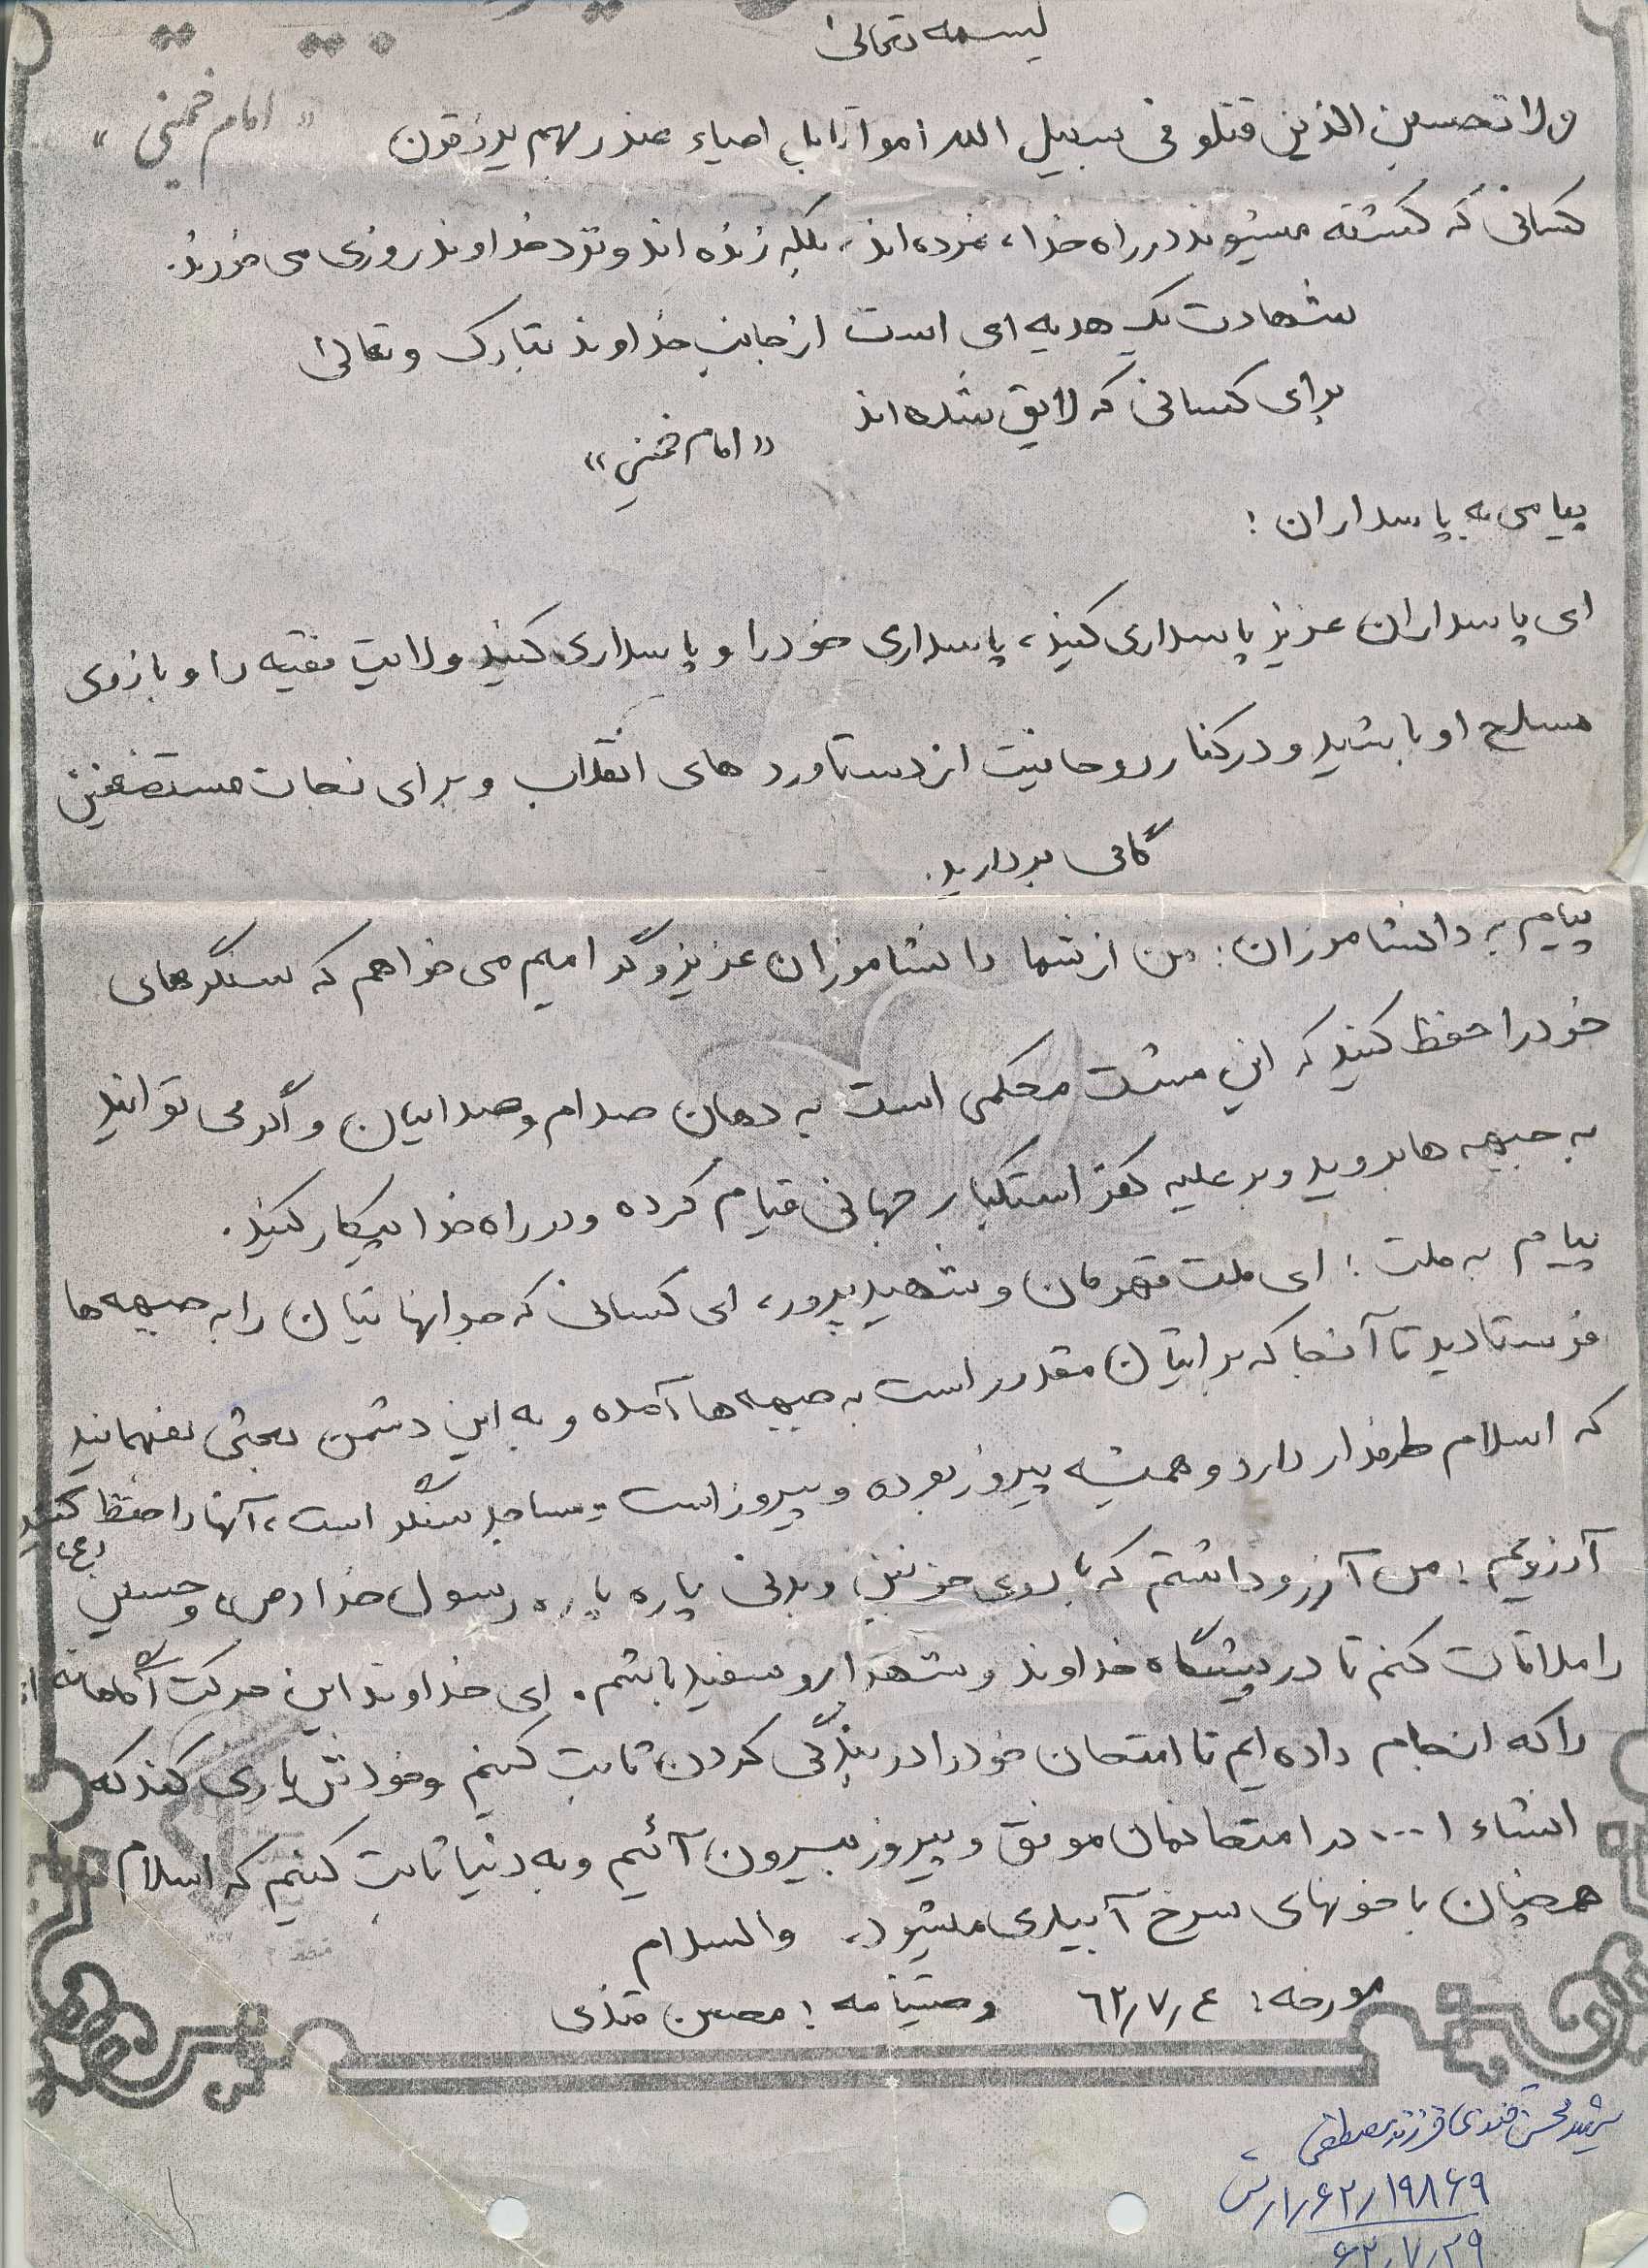 بسمه تعالی
« امام خمینی »
ولا تحسبن الذین قتلو فی سبیل الله امواتا بل احیاء عند ربهم یرزقون
کسانی که کشته میشوند در راه خدا، نمرده اند، بلکه زنده اند و نزد خداوند روزی می خورند.
شهادت یک هدیه ای است از جانب خداوند تبارک و تعالی
برای کسانی که لایق شده اند
«امام خمینی»
پیامی به پاسداران :
ای پاسداران عزیز پاسداری کنید، پاسداری خود را و پاسداری کنید ولایت فقیه را و بازوی
مسلح او باشید و در کنار روحانیت از دستاورد های انقلاب و برای نجات مستضعفین
گامی بردارید.
پیام به دانشاموزان : من از شما دانشاموزان عزیز و گرامیم می خواهم که سنگرهای
خود را حفظ کنید که این مشت محکمی است به دهان صدام و صدامیان و اگر می توانید
به جبهه ها بروید و بر علیه کفر استکبار جهانی قیام کرده و در راه خدا پیکار کنید.
پیام به ملت : ای ملت قهرمان و شهید پرور، ای کسانی که جوانهایتان را به جبهه ها
فرستادید تا آنجا که برایتان مقدور است به جبهه ها آمده و به این دشمن بعثی بفهمانید
که اسلام طرفدار دارد و همیشه پیروز بوده و پیروز است - مساجد سنگر است، آنها را حفظ کنید
آرزویم : من آرزو داشتم که با روی خونین و بدنی پاره پاره رسول خدا (ص) و حسین (ع)
را ملاقات کنم تا در پیشگاه خداوند و شهدا رو سفید باشم. ای خداوند این حرکت آگاهانه
را که انجام داده ایم تا امتحان خود را در بندگی کردن ثابت کنیم و خودش یاری کند که
انشاء ا... در امتحانمان موفق و پیروز بیرون آئیم و به دنیا ثابت کنیم که اسلام
همچنان با خونهای سرخ آبیاری میشود. والسلام
مورخه : ٤ر٧ر٦٢ وصیتنامه : محسن قندی
شهید محسن قندی فرزند مصطفی
۱۹۸۶۹ر۶۲ر۱رش
۲۹ر۷ر۶۲